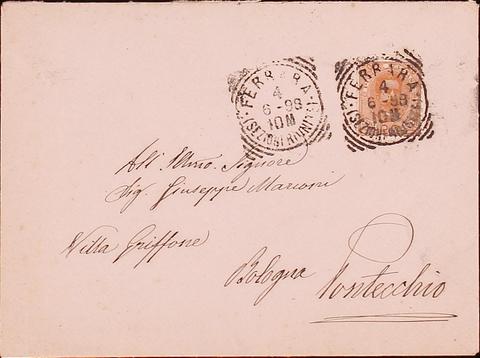 FERRARA
4
6-98
10 M
(SEZIONI RIUNITE)
FERRARA
4
6-98
10 M
(SEZIONI RIUNITE)
All' Illmo. Signore
Sig. Giuseppe Marconi
Villa Griffone
Bologna Pontecchio